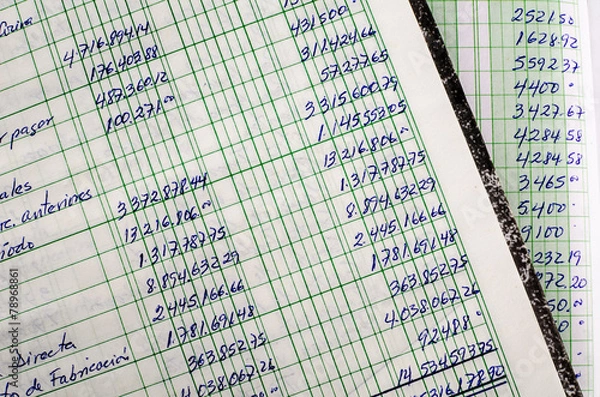 4.716.894.14
176.403.88
487.360.12
r pagar 100.271.00
ales
rc. anteriores 3.372.878.44
ríodo 13.216.806.00
1.317.787.75
8.894.632.29
2.445.166.66
Directa 1.781.691.48
to de Fabricación 363.852.75
4.038.067.26
431.500.0
311.424.66
57.277.65
3.315.600.79
1.145.553.05
13.216.806.0
1.317.787.75
8.894.632.29
2.445.166.66
1.781.691.48
363.852.75
4.038.067.26
92.488.0
14.534.593.75
2521.50
1628.92
5592.37
4400.0
3427.67
4284.58
4284.58
3465.00
5.400.0
9100.0
232.19
972.20
50.00
Adobe Stock | #78968861